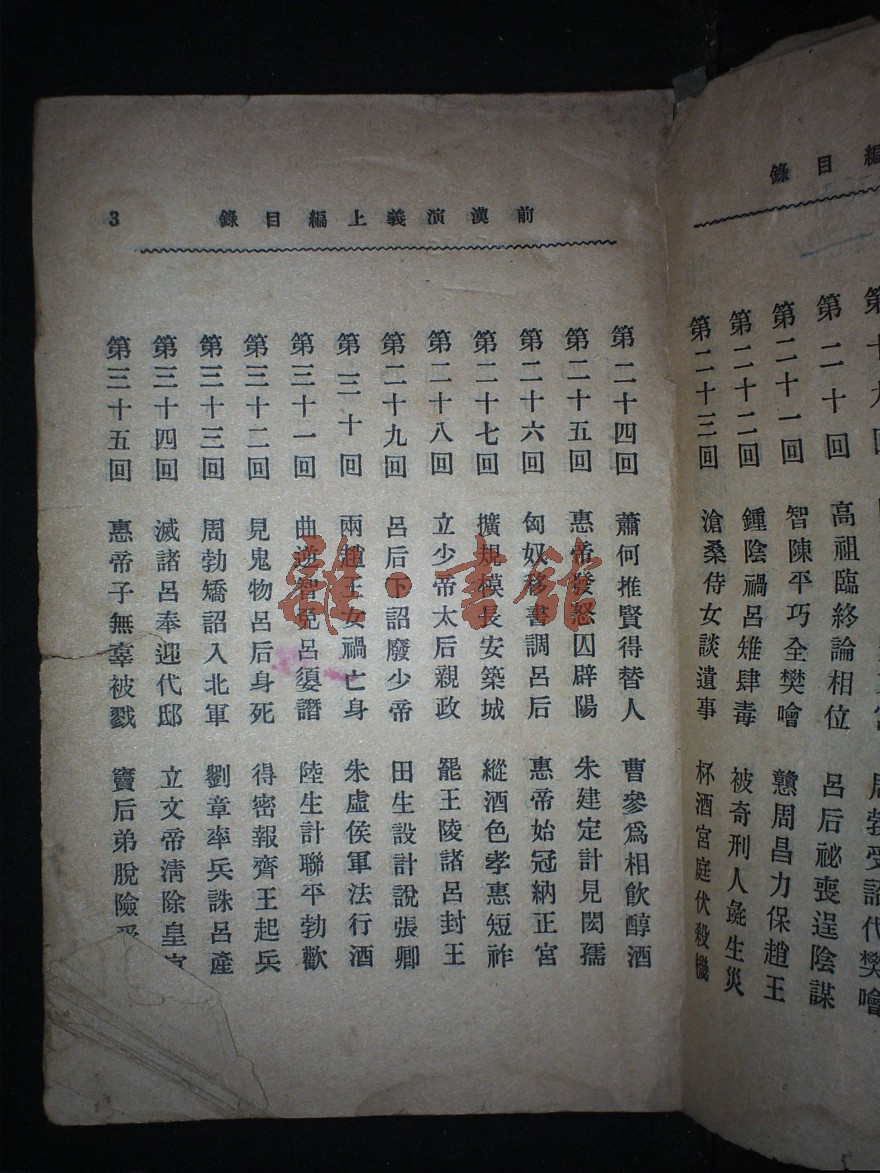 編目錄
第十九回
第二十回 高祖臨終論相位 呂后祕喪逞陰謀
第二十一回 智陳平巧全樊噲 戇周昌力保趙王
第二十二回 鍾陰禍呂雉肆毒 被奇刑人彘生災
第二十三回 滄桑侍女談遺事 杯酒宮庭伏殺機
前漢演義上編目錄 3
第二十四回 蕭何推賢得替人 曹參爲相飲醇酒
第二十五回 惠帝發怒囚辟陽 朱建定計見閎孺
第二十六回 匈奴移書調呂后 惠帝始冠納正宮
第二十七回 擴規模長安築城 縱酒色孝惠短祚
第二十八回 立少帝太后親政 罷王陵諸呂封王
第二十九回 呂后下詔廢少帝 田生設計說張卿
第三十回 兩趙王女禍亡身 朱虛侯軍法行酒
第三十一回 曲逆智免呂嬃譖 陸生計聯平勃歡
第三十二回 見鬼物呂后身死 得密報齊王起兵
第三十三回 周勃矯詔入北軍 劉章率兵誅呂產
第三十四回 滅諸呂奉迎代邸 立文帝淸除皇宮
第三十五回 惠帝子無辜被戮 竇后弟脫險
雜·書館